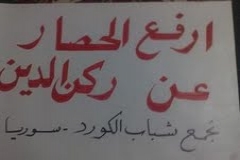 ارفع الحصار
عن ركن الدين
تجمع شباب الكورد - سوريا